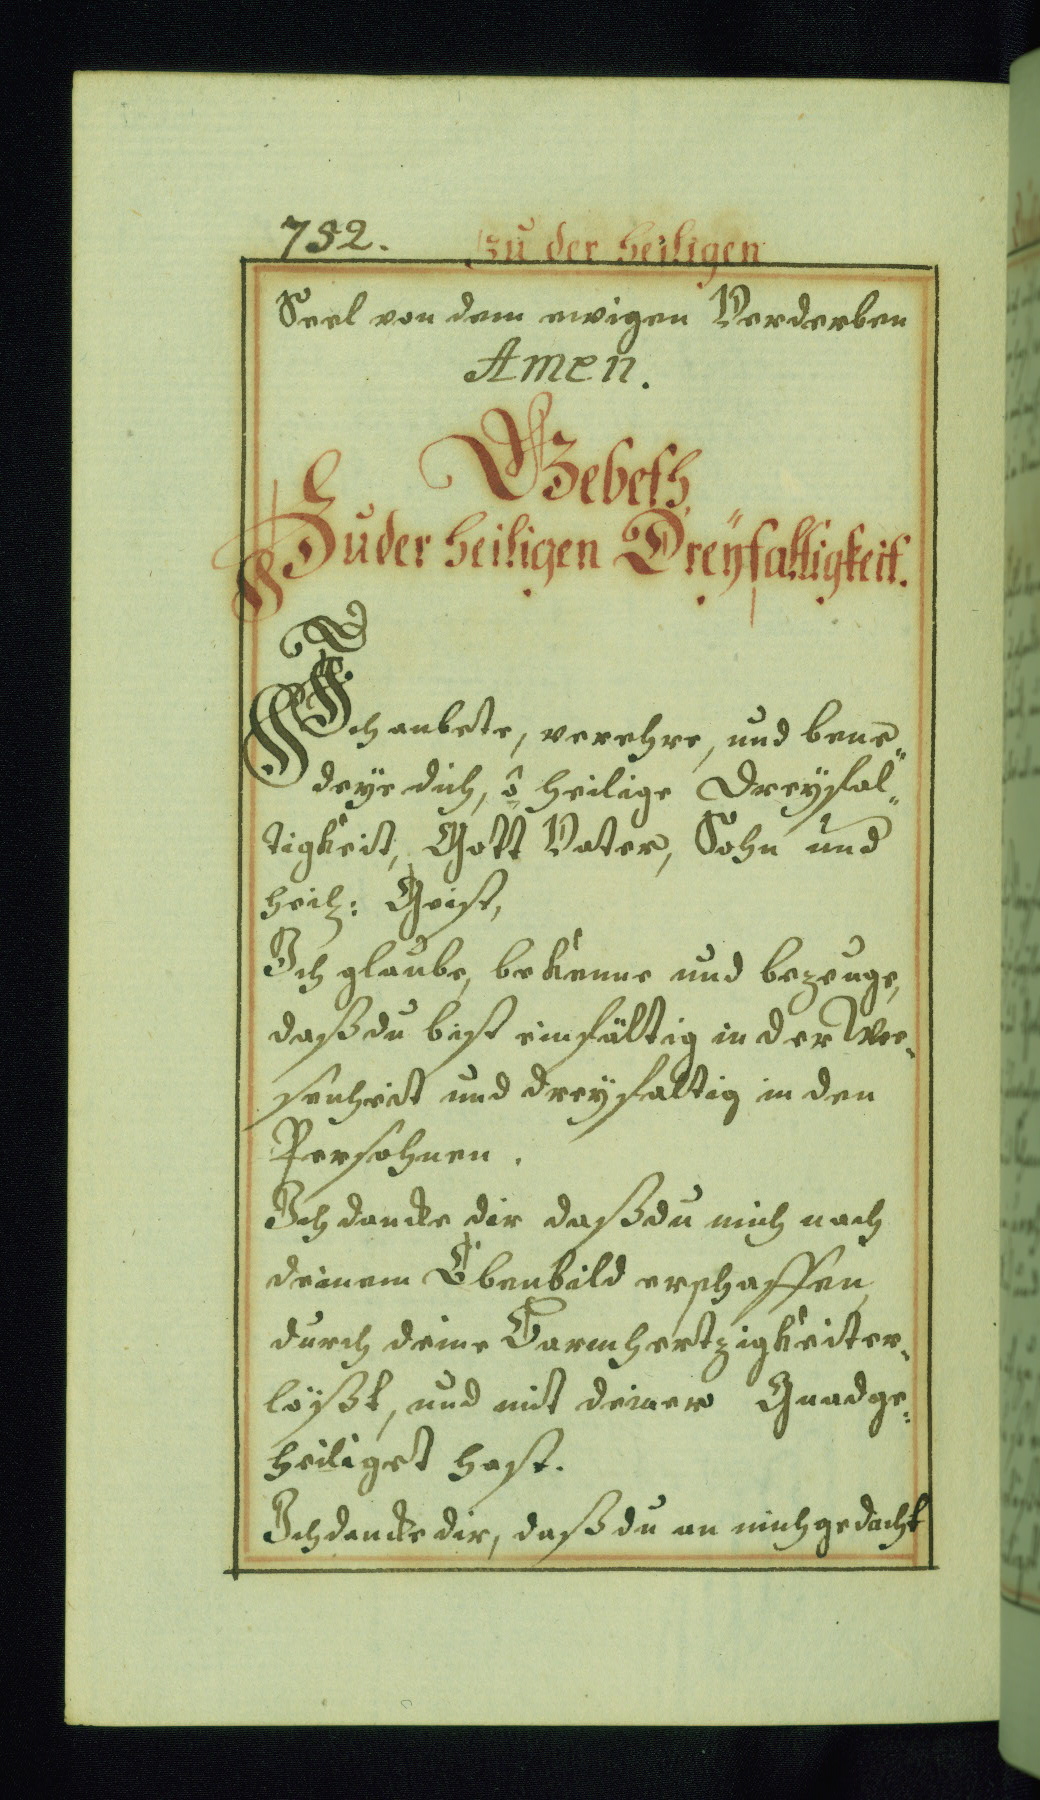 752. zu der heiligen
Seel von dem ewigen Verderben
Amen.
Gebeth,
Zu der heiligen Dreÿfaltigkeit.
Ich anbete, verehre, und bene„
deÿe dich, ô heilige Dreÿfal„
tigkeit, Gott Vater, Sohn und
heil: Geist,
Ich glaube, bekenne und bezeuge,
daß du bist einfältig in der We„
senheit und dreÿfaltig in den
Persohnen.
Ich dancke dir daß du mich nach
deinem Ebenbild erschaffen,
durch deine Barmhertzigkeit er„
lößt, und mit deiner Gnad ge„
heiliget hast.
Ich dancke dir, daß du an mich gedacht